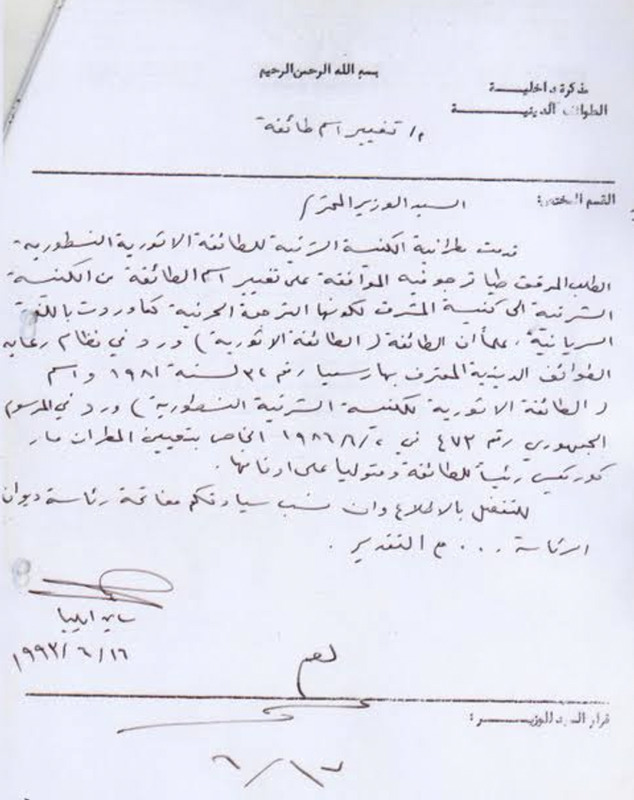 بسم الله الرحمن الرحيم
مذكرة داخليـــة
الطوائف الدينيـــة
م/ تغيير اسم طائفة
القسم المختص:
السيد الوزير المحترم/
قدمت مطرانية الكنيسة الشرقية للطائفة الاثورية النسطورية
الطلب المرفق طيا ترجو فيه الموافقة على تغيير اسم الطائفة من الكنيسة
الشرقية الى كنيسة المشرق لكونها الترجمة الحرفية كما وردت باللغة
السريانية، علماً أن الطائفة (الطائفة الاثورية) ورد في نظام رعاية
الطوائف الدينية المعترف بها رسميا رقم ٣٢ لسنة ١٩٨١ واسم
(الطائفة الاثورية للكنيسة الشرقية النسطورية) ورد في المرسوم
الجمهوري رقم ٤٧٣ في الخاص بتعيين المطران مار
كوركيس رئيساً للطائفة ومتوليا على اوقافها.
للتفضل بالاطلاع وان نسب سيادتكم مفاتحة رئاسة ديوان
الرئاسة ... مع التقدير.
ايليا
١٩٩٣/٦/١٦
نعم
قرار السيد الوزيـــر:
٦/١٦